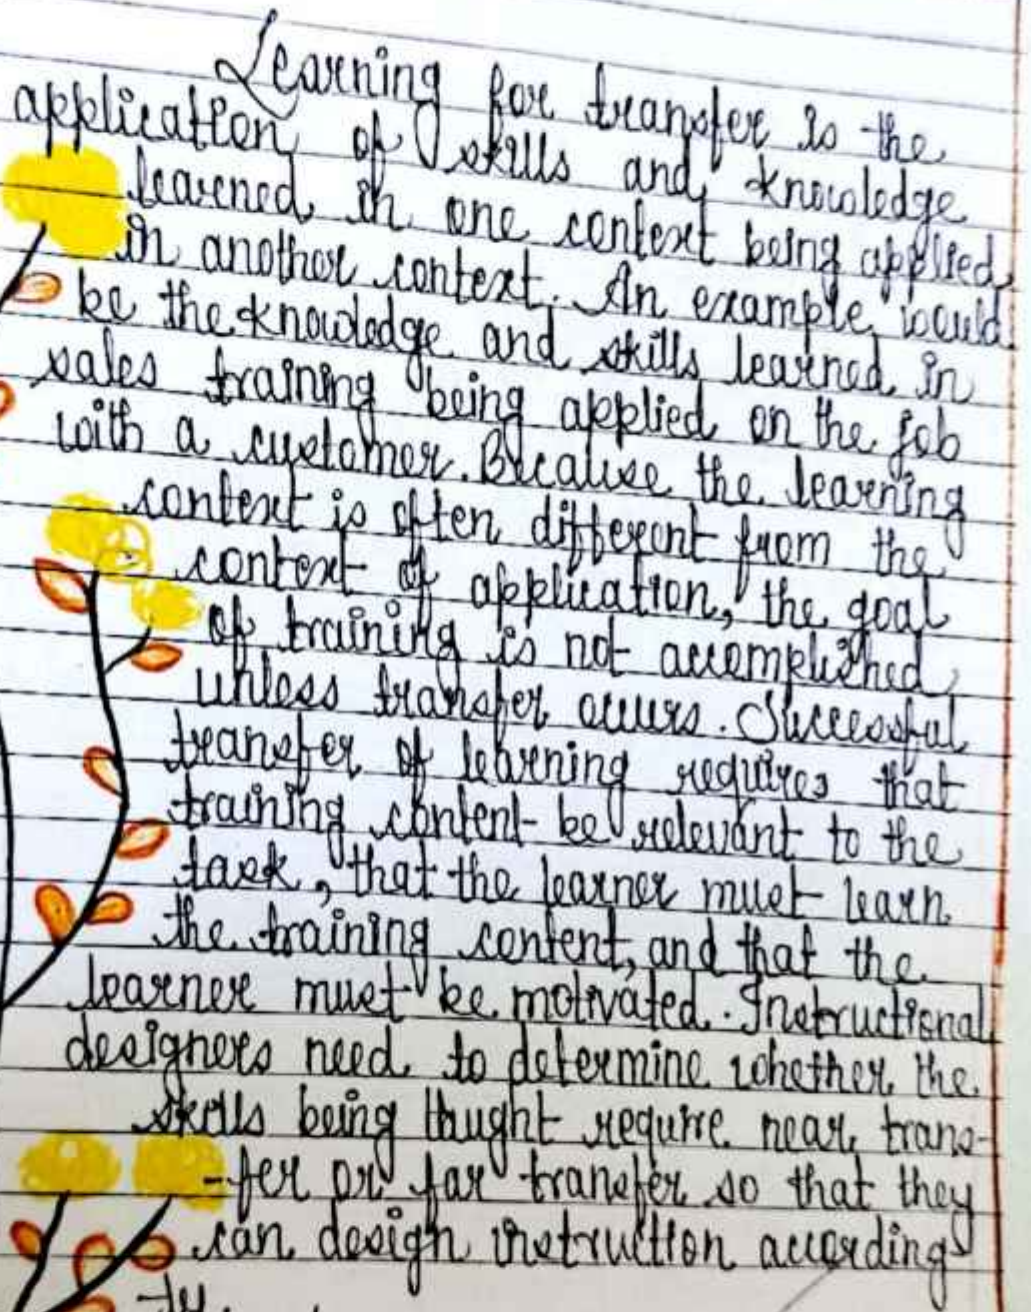 Learning for transfer is the
application of skills and knowledge
learned in one context being applied
in another context. An example would
be the knowledge and skills learned in
sales training being applied on the job
with a customer. Because the learning
context is often different from the
context of application, the goal
of training is not accomplished
unless transfer occurs. Successful
transfer of learning requires that
training content be relevant to the
task, that the learner must learn
the training content, and that the
learner must be motivated. Instructional
designers need to determine whether the
skills being thught require near trans-
-fer or far transfer so that they
can design instruction according
-ly